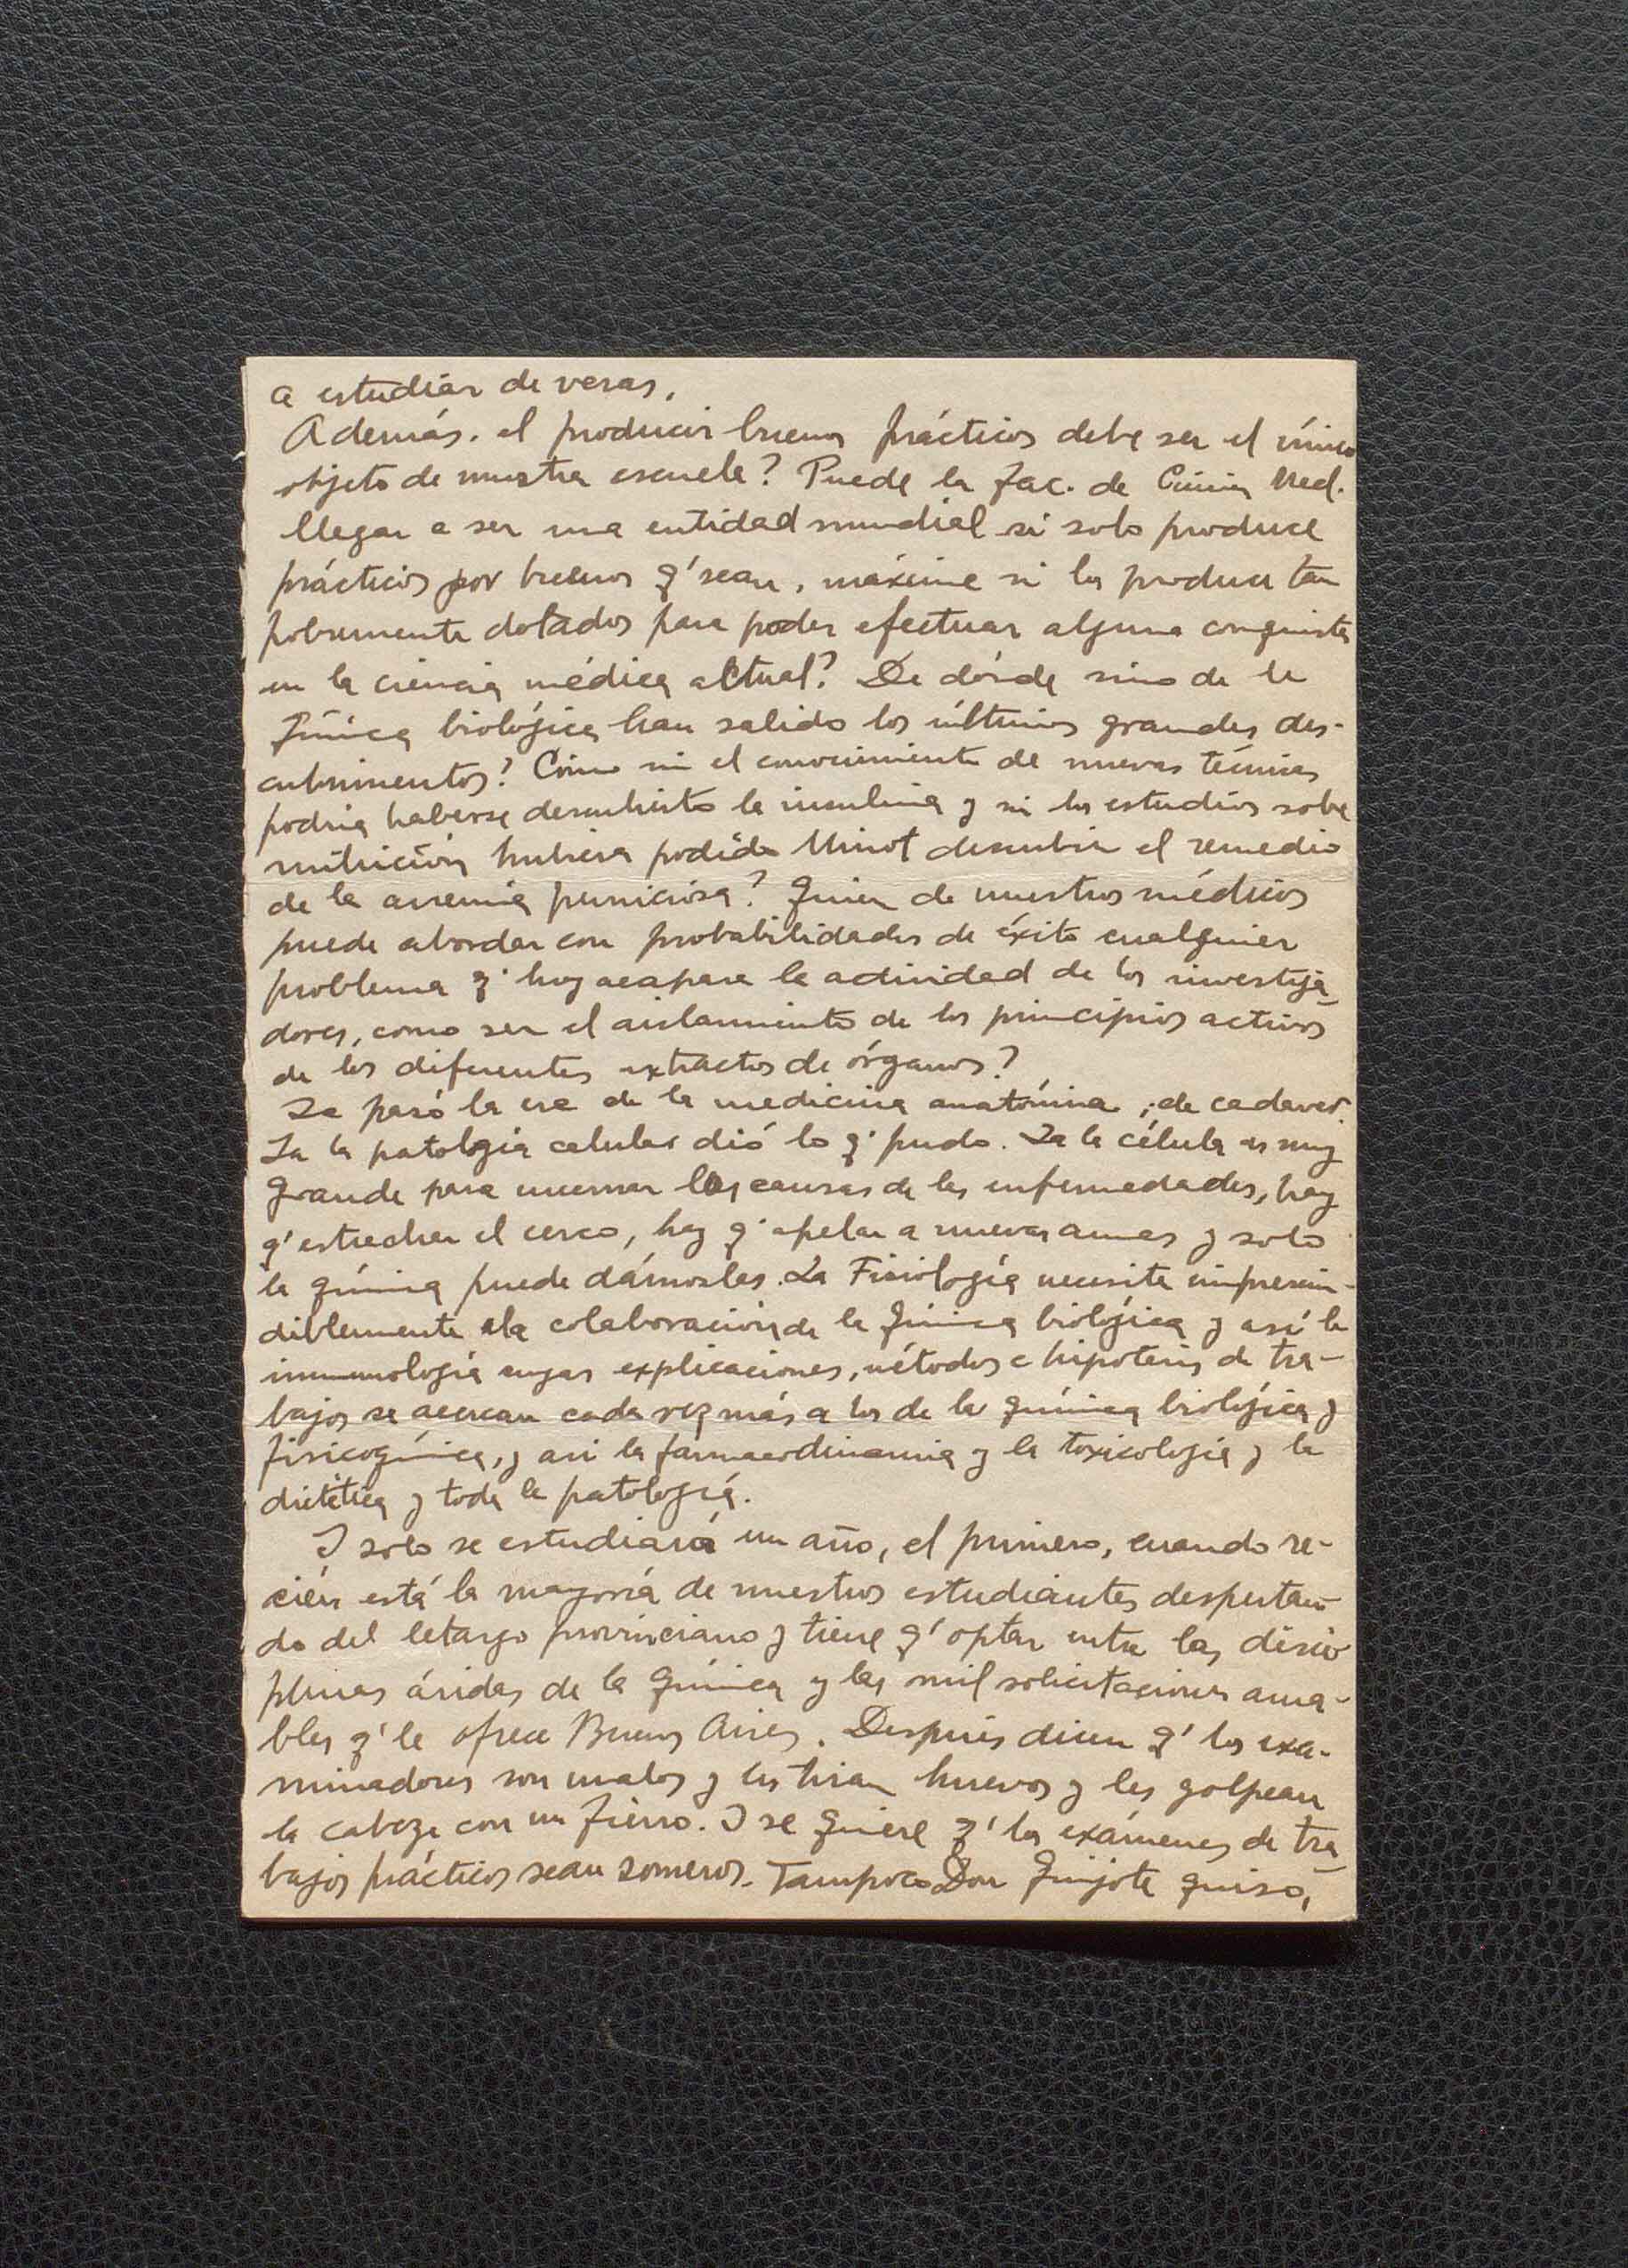 a estudiar de veras.
Además. el producir buenos prácticos debe ser el único
objeto de nuestra escuela? Puede la Fac. de Ciencias Med.
llegar a ser una entidad mundial si solo produce
prácticos por buenos q' sean, máxime si los produce tan
pobremente dotados para poder efectuar alguna conquista
en la ciencia médica actual? De dónde sino de la
Química biológica han salido los últimos grandes des-
cubrimentos? Cómo sin el conocimiento de nuevas técnicas
podría haberse descubierto la insulina y sin los estudios sobre
nutrición hubiera podido Minot descubrir el remedio
de la anemia perniciosa? Quien de nuestros médicos
puede abordar con probabilidades de éxito cualquier
problema q' hoy acapara la actividad de los investiga-
dores, como ser el aislamiento de los principios activos
de los diferentes extractos de órganos?
Ya pasó la era de la medicina anatómica, de cadaver
Ya la patología celular dió lo q' pudo. Ya la célula es muy
grande para encerrar las causas de las enfermedades, hay
q' estrechar el cerco, hay q' apelar a nuevas armas y solo
la química puede dárnoslas. La Fisiología necesita imprescin-
diblemente la colaboración de la química biológica y así la
inmunología cuyas explicaciones, métodos e hipotesis de tra-
bajos se acercan cada vez más a los de la química biológica y
fisicoquímica, y asi la farmacodinamia y la toxicología y la
dietética y toda la patología.
Y solo se estudiará un año, el primero, cuando re-
cién está la mayoría de nuestros estudiantes despertan-
do del letargo provinciano y tiene q' optar entre las disci-
plinas áridas de la química y las mil solicitaciones ama-
bles q' le ofrece Buenos Aires. Después dicen q' los exa-
minadores son malos y les tiran huevos y les golpean
la cabeza con un fierro. Y se quiere q' los exámenes de tra-
bajos prácticos sean someros. Tampoco Don Quijote quiso,